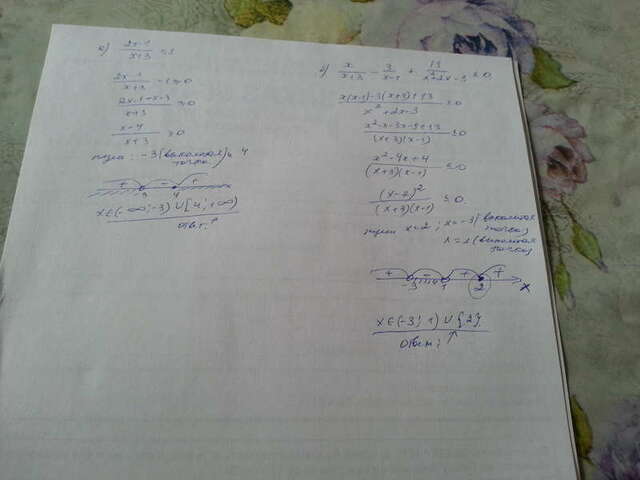 а) 2x-1/x+3 ≥1
2x-1/x+3 -1≥0
2x-1-x-3/x+3 ≥0
x-4/x+3 ≥0
нули: -3(выколотая точка), 4
+ - +
-3 4
x∈(-∞;-3)∪[4;+∞)
ответ↑
x/x+3 - 3/x-1 + 13/x²+2x-3 ≤0
x(x-1)-3(x+3)+13/x²+2x-3 ≤0
x²-x-3x-9+13/(x+3)(x-1) ≤0
x²-4x+4/(x+3)(x-1) ≤0
(x-2)²/(x+3)(x-1) ≤0
нули x=2; x=-3(выколотая точка)
x=1(выколотая точка)
+ - + +
-3 1 2 x
x∈(-3;1)∪{2}
ответ↑